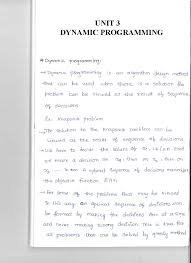 UNIT 3
DYNAMIC PROGRAMMING
Dynamic programming:
Dynamic programming is an algorithm design method
that can be used when there is a solution to
problem can be viewed as the result of sequence
of decisions
Ex: Knapsack problem
The solution to the knapsack problem can be
viewed as the result of sequence of decisions
we have to decide the values of
make a decision on
optimal sequence of decisions
the objective function
For some of the problems that may be viewed
in this way an optimal sequence of decisions can
be formed by making the decisions one at a time
and never making wrong decision this is true for
all problems that can be solved by greedy method